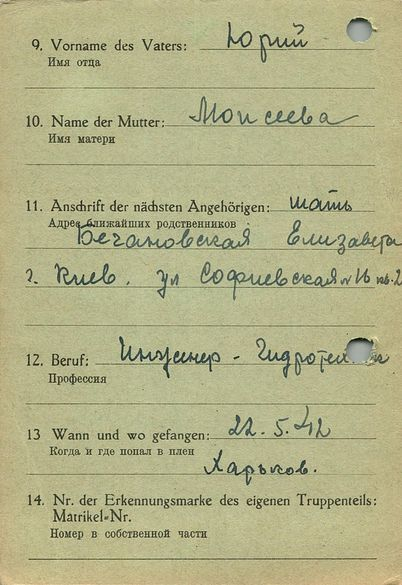 9. Vorname des Vaters: Юрий
Имя отца
10. Name der Mutter: Моисеева
Имя матери
11. Anschrift der nächsten Angehörigen: мать
Адрес ближайших родственников
Бечановская Елизавета
г. Киев. ул Софиевская № 16 кв. 2
12. Beruf: Инженер -
Профессия
13 Wann und wo gefangen: 22. 5. 42
Когда и где попал в плен
Харьков.
14. Nr. der Erkennungsmarke des eigenen Truppenteils:
Matrikel-Nr.
Номер в собственной части